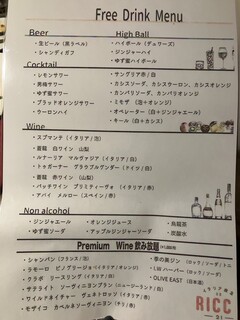 Free Drink Menu
Beer
・生ビール（黒ラベル）
・シャンディガフ
High Ball
・ハイボール（デュワーズ）
・ジンジャーハイ
・ゆず蜜ハイボール
Cocktail
・レモンサワー
・男梅サワー
・ゆず蜜サワー
・ブラッドオレンジサワー
・ウーロンハイ
・サングリア赤/白
・カシスソーダ、カシスウーロン、カシスオレンジ
・カンパリソーダ、カンパリオレンジ
・ミモザ（泡＋オレンジ）
・オペレーター（白＋ジンジャエール）
・キール（白＋カシス）
Wine
・スプマンテ（イタリア/泡）
・首龍 白ワイン 山梨
・ルナーリア マルヴァジア（イタリア/白）
・トゥガーナー グラウブルグンダー（ドイツ/白）
・首龍 赤ワイン（山梨）
・パッチワイン プリミティーヴォ（イタリア/赤）
・アパイ メルロー（スペイン/赤）
Non alcohol
・ジンジャエール
・ゆず蜜ソーダ
・オレンジジュース
・アップルジンジャーソーダ
・烏龍茶
・炭酸水
Premium Wine 飲み放題
・シャンパン（フランス/泡）
・ラモーロ ピノグリージョ（イタリア/オレンジ）
・クラポ リースリング（イタリア/白）
・ザテライト ソーヴィニヨンブラン（ニュージーランド/白）
・ワイルドネイチャー ヴェネトロッソ（イタリア/赤）
・モセカ カベルネソーヴィニヨン（チリ/赤）
・季の美ジン（ロック/ソーダ/トニ
・LIB ハーバー（ロック/ソーダ
・OLIVE EAST（日本酒）
RICC